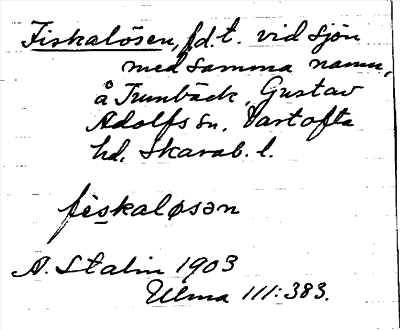 Fiskalösen, fd. t. vid sjön
med samma namn,
å Trumbäck, Gustav
Adolfs sn. Vartofta
hd. Skarab. l.
fiskaløsən
A. Stalin 1903
Ulma 111:383.